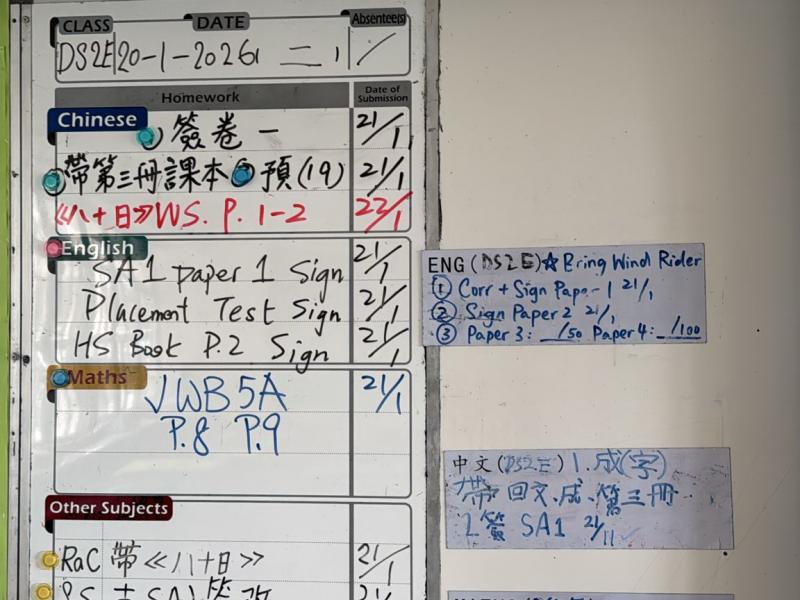 CLASS DATE Absentee(s)
DS2E 20-1-2026 二 1 /
Homework Date of Submission
Chinese
① 簽卷一 21/1
① 帶第三冊課本 ② 預(19) 21/1
《八十日》WS. P. 1-2 22/1
English
SA1 paper 1 Sign 21/1
Placement Test Sign 21/1
HS Book P.2 Sign 21/1
Maths
JWB5A 21/1
P.8 P.9
Other Subjects
RaC 帶《八十日》 21/1
ENG (DS2E)☆ Bring Wind Rider
① Corr + Sign Paper 1 21/1
② Sign Paper 2 21/1
③ Paper 3: __/50 Paper 4: __/100
中文(DS2E) 1.成(字)
帶回文.成.第三冊
2.簽 SA1